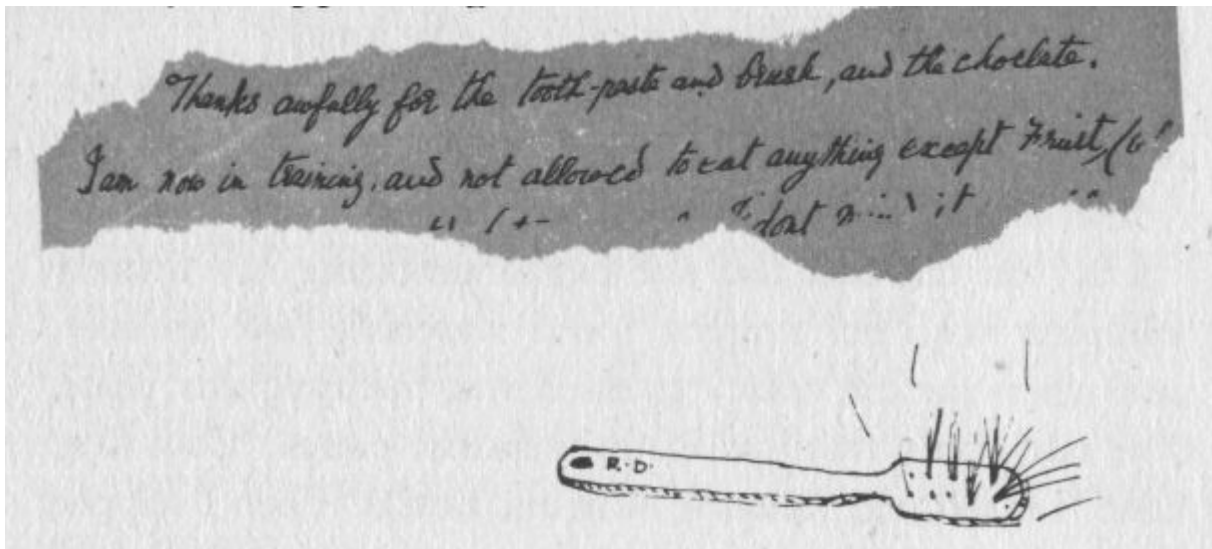 Thanks awfully for the tooth-paste and brush, and the choclate.
I am now in training, and not allowed to eat anything except Fruit,
I dont mind it
R.D.